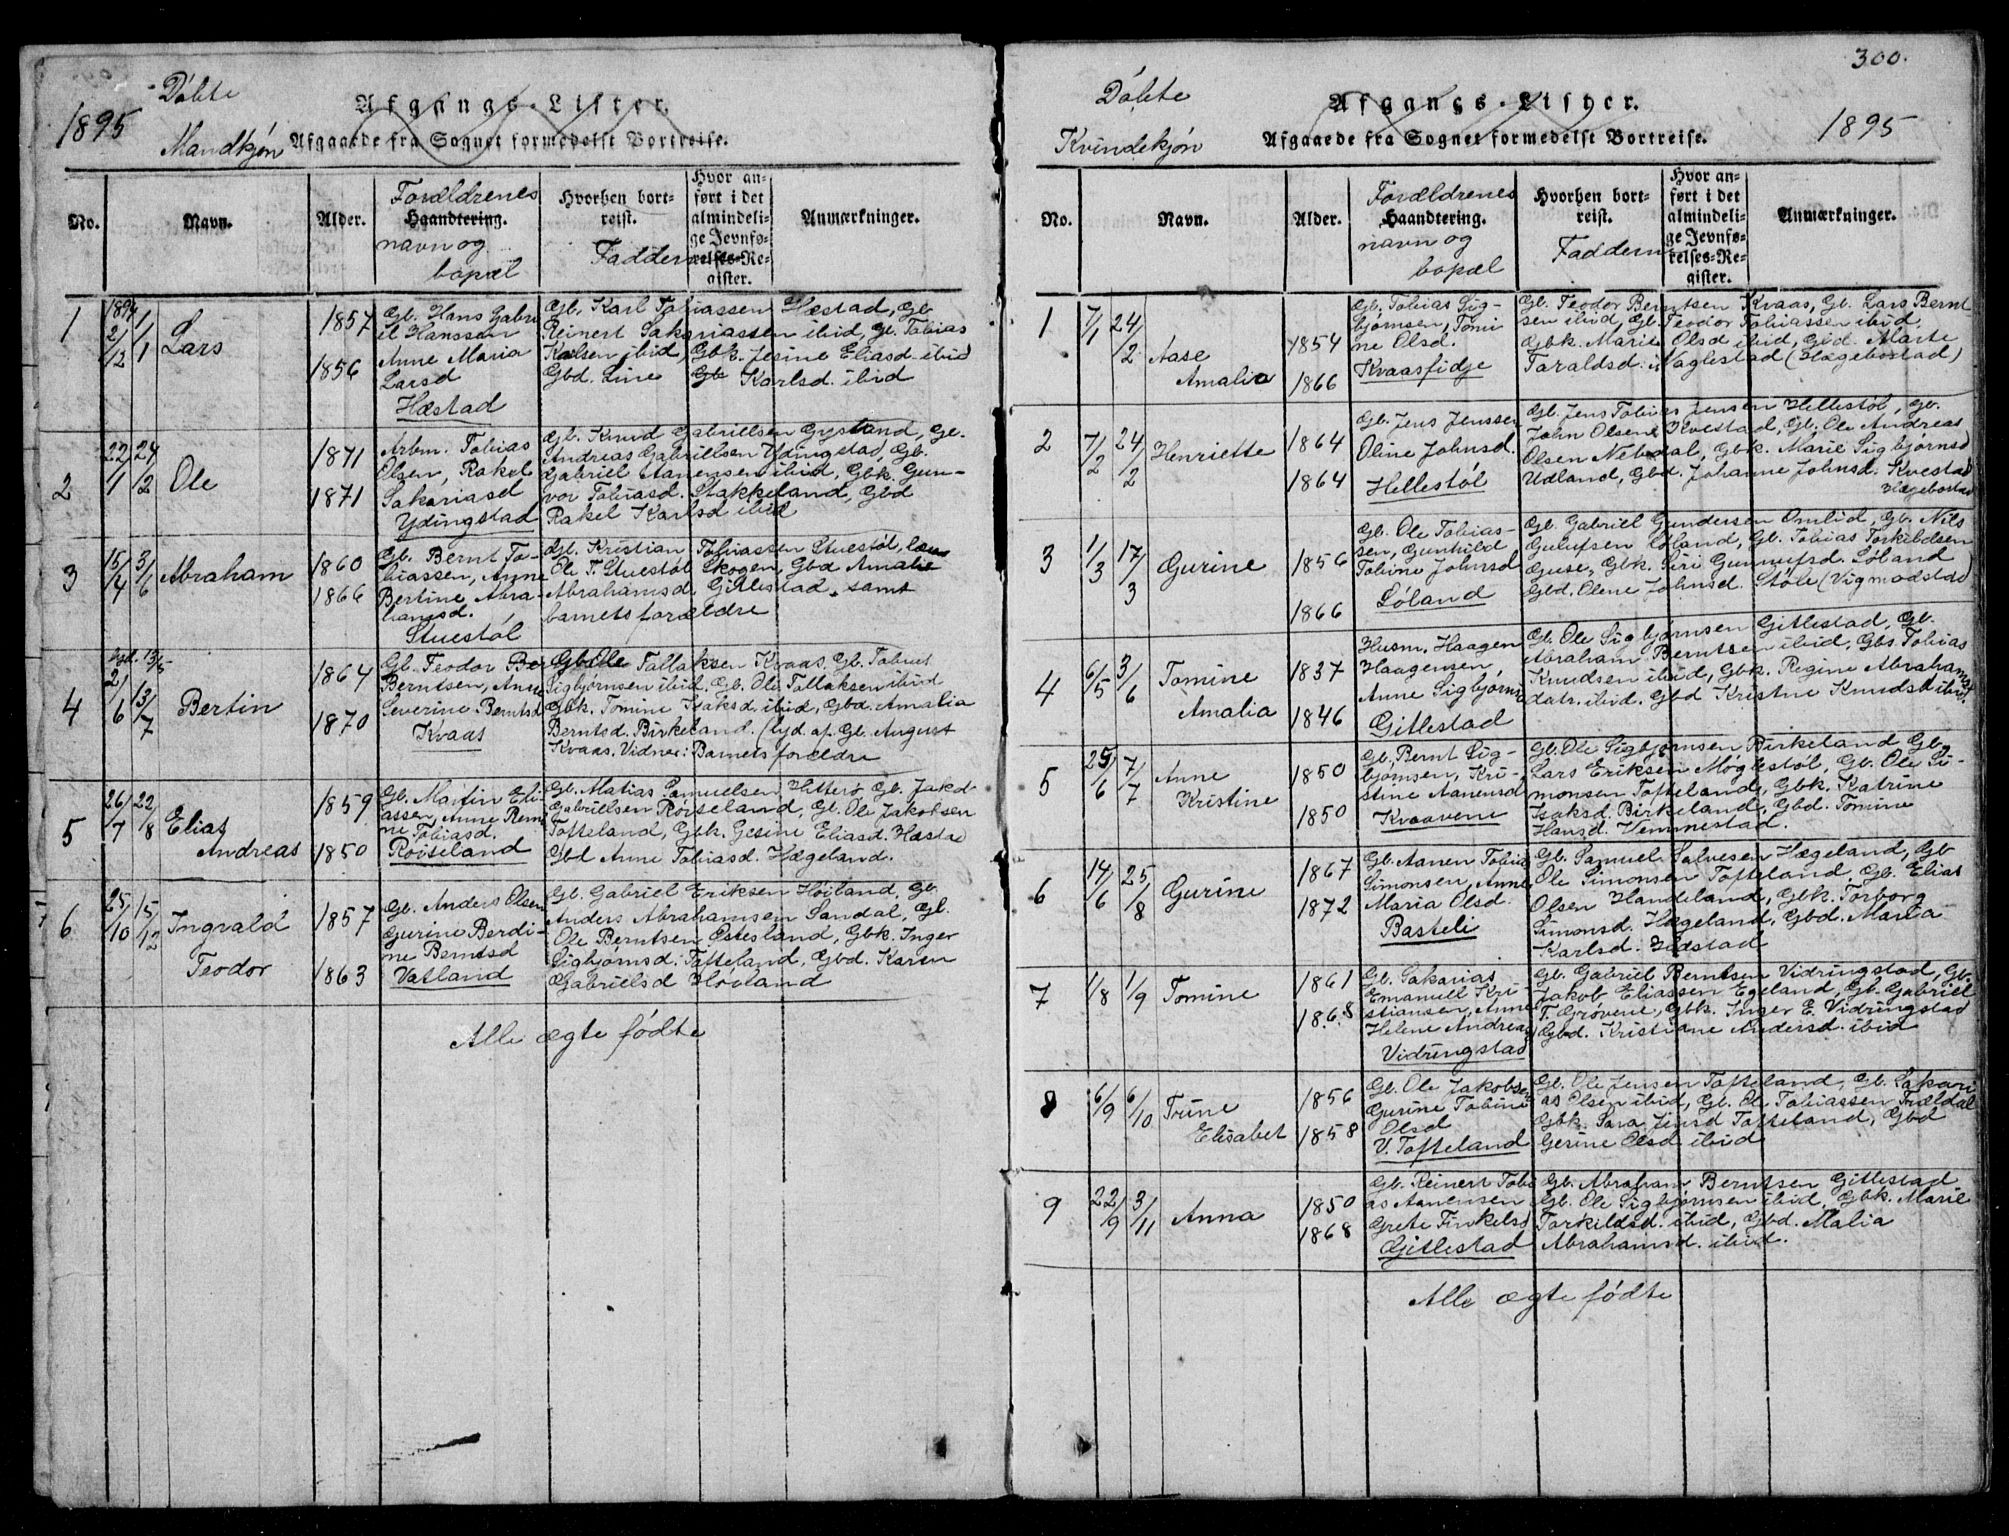 Døbte
1895
Afgangs-Lister.
Mandkjøn
Afgaaede fra Sognet formedelst Bortreise.
No.
Navn.
Alder.
Forældrenes
Haandtering.
navn og
bopæl
Hvorhen bort-
reist.
Faddern
Hvor an-
ført i det
almindeli-
ge Jevnfø-
relses-Re-
gister.
Anmærkninger.
1
1894
2/12
1/1
Lars
1857
1856
Gb. Hans Gabri
el Hanssøn
Anne Maria
Larsd
Hæstad
Gb. Karl Tobiassen Hæstad, Gb
Reinert Sakariassen ibid, Gb. Tobias
Karlsen ibid, Gbk. Jesine Eliasd ibid
Gbd. Line Karlsd. ibid
2
22/1
24/2
Ole
1871
1871
Arbm. Tobias
Olsen, Rakel
Sakariasd
Ydingstad
Gb. Knud Gabrielsen Gystand, Gb.
Andreas Gabrielsen Ydingstad, Gb.
Gabriel Aanensen ibid, Gbk. Gun-
vor Tobiasd. Stakkeland, Gbd
Rakel Karlsd ibid
3
15/4
3/6
Abraham
1860
1866
Gb. Bernt To-
biassen, Anne
Bertine Abra-
hamsd.
Stuestøl
Gb. Kristian Tobiassen Stuestøl,
Ole T. Stuestøl Skogen, Gbd Amalie
Abrahamsd. Gitlestad samt
barnets forældre
4
hjd. 13/5
2/6
13/7
Bertin
1864
1870
Gb. Teodor Ber
Berntsen, Anne
Severine Berntsd
Kvaas
Gb Ole Tallaksen Kvaas, Gb. Tobias
Sigbjørnsen ibid. Gb. Ole Tallaksen ibid
Gbk. Tomine Isaksd. ibid, Gbd. Amalia
Berntsd. Birkeland. (hjd. af Gb. August
Kvaas. Vidner: Barnets forældre
5
26/7
22/8
Elias
Andreas
1859
1850
Gb. Martin Eli-
assen, Anne Rem
ne Tobiasd.
Røiseland
Gb. Matias Samuelsen Hitterø Gb. Jakob
Gabrielsen Røiseland, Gb. Ole Jakobsen
Tofteland, Gbk. Gesine Eliasd. Hæstad
Gbd Anne Tobiasd. Hægeland.
6
25/10
15/12
Ingvald
Teodor
1857
1863
Gb. Anders Olsen
Gurine Berdi-
ne Berntsd
Vatland
Gb. Gabriel Eriksen Høiland, Gb.
Anders Abrahamsen Sandal, Gb.
Ole Berntsen Østesland, Gbk. Inger
Sigbjørnsd. Tofteland, Gbd. Karen
Gabrielsd Høvland
Alle ægte fødte
300.
Døbte
Afgangs-Lister.
Kvindekjøn
Afgaaede fra Sognet formedelst Bortreise.
1895
No.
Navn.
Alder.
Forældrenes
Haandtering.
navn og
bopæl
Hvorhen bort-
reist.
Faddern
Hvor an-
ført i det
almindeli-
ge Jevnfø-
relses-Re-
gister.
Anmærkninger.
1
7/1
24/2
Aase
Amalia
1854
1866
Gb. Tobias Sig-
bjørnsen, Tomi
ne Olsd.
Kvaasfidje
Gb. Teodor Berntsen Kvaas, Gb. Lars Bernt
sen ibid, Gb. Teodor Tobiassen ibid,
Gbk. Marie Olsd ibid, Gbd. Marte
Taraldsd. i Naglestad (Hægebostad)
2
7/2
24/2
Henriette
1864
1864
Gb. Jens Jenssen
Oline Johnsd.
Hellestøl
Gb. Jens Tobias Jensen Hellestøl, Gb.
John Olsen Kvestad, Gb. Ole Andreas
Olsen Nebdal, Gbk. Marie Sigbjørnsd
Udland, Gbd. Johanne Johnsd. Kvestad
Hægebostad
3
1/3
17/3
Gurine
1856
1866
Gb. Ole Tobias-
sen, Gunhild
Tobine Johnsd
Løland
Gb. Gabriel Gundersen Omlid, Gb. Nils
Gulufsen Løland, Gb. Tobias Torkildsen
Gjuse, Gbk. Siri Gunnufsd. Løland
Gbd. Olene Johnsd. Støle (Vigmodstad)
4
6/5
3/6
Tomine
Amalia
1837
1846
Husm. Haagen
Haagensen,
Anne Sigbjørns
Gitlestad
Gb. Ole Sigbjørnsen Gitlestad, Gb.
Abraham Berntsen ibid, Gbs Tobias
Knudsen ibid, Gbk. Regine Abrahams
datr. ibid. Gbd Kristne Knudsd ibid.
5
25/6
7/7
Anne
Kristine
1850
1850
Gb. Bernt Sig-
bjørnsen, Kri-
stine Aanensd
Kvaavene
Gb. Ole Sigbjørnsen Birkeland Gb.
Lars Eriksen Møglestøl, Gb. Ole Si-
monsen Tofteland, Gbk. Katrine
Isaksd. Birkeland, Gbd. Tomine
Hansd. Hemmestad.
6
14/6
25/8
Gurine
1867
1872
Gb. Aanen Tobias
Simonsen, Anne
Maria Olsd.
Basteli
Gb. Samuel Salvesen Hægeland, Gb
Ole Simonsen Tofteland, Gb. Elias
Olsen Handeland, Gbk. Torborg
Simonsd. Hægeland, Gbd. Maria
Karlsd. Hæstad
7
1/8
1/9
Tomine
1861
1868
Gb. Sakarias
Emanuell Kri-
stiansen, Anne
Helene Andreas
Vidringstad
Gb. Gabriel Berntsen Vidringstad, Gb.
Jakob Eliassen Egeland, Gb. Gabriel
T. Grøvene, Gbk. Inger E. Vidringstad
Gbd. Kristiane Andersd. ibid
8
6/9
6/10
Trine
Elisabet
1856
1858
Gb. Ole Jakobsen
Gurine Tobine
Olsd
V. Tofteland
Gb. Ole Jensen Tofteland, Gb. Sakari
as Olsen ibid, Gb. Ole Tobiassen Trældal
Gbk. Sara Jensd Tofteland, Gbd
Gesine Olsd ibid
9
22/9
3/11
Anna
1850
1868
Gb. Reinert Tobi
as Aanensen
Grete Tinkelsd
Gitlestad
Gb. Abraham Berntsen Gitlestad
Gb. Ole Sigbjørnsen ibid, Gbk. Marie
Torkildsd. ibid, Gbd. Malia
Abrahamsd. ibid.
Alle ægte fødte